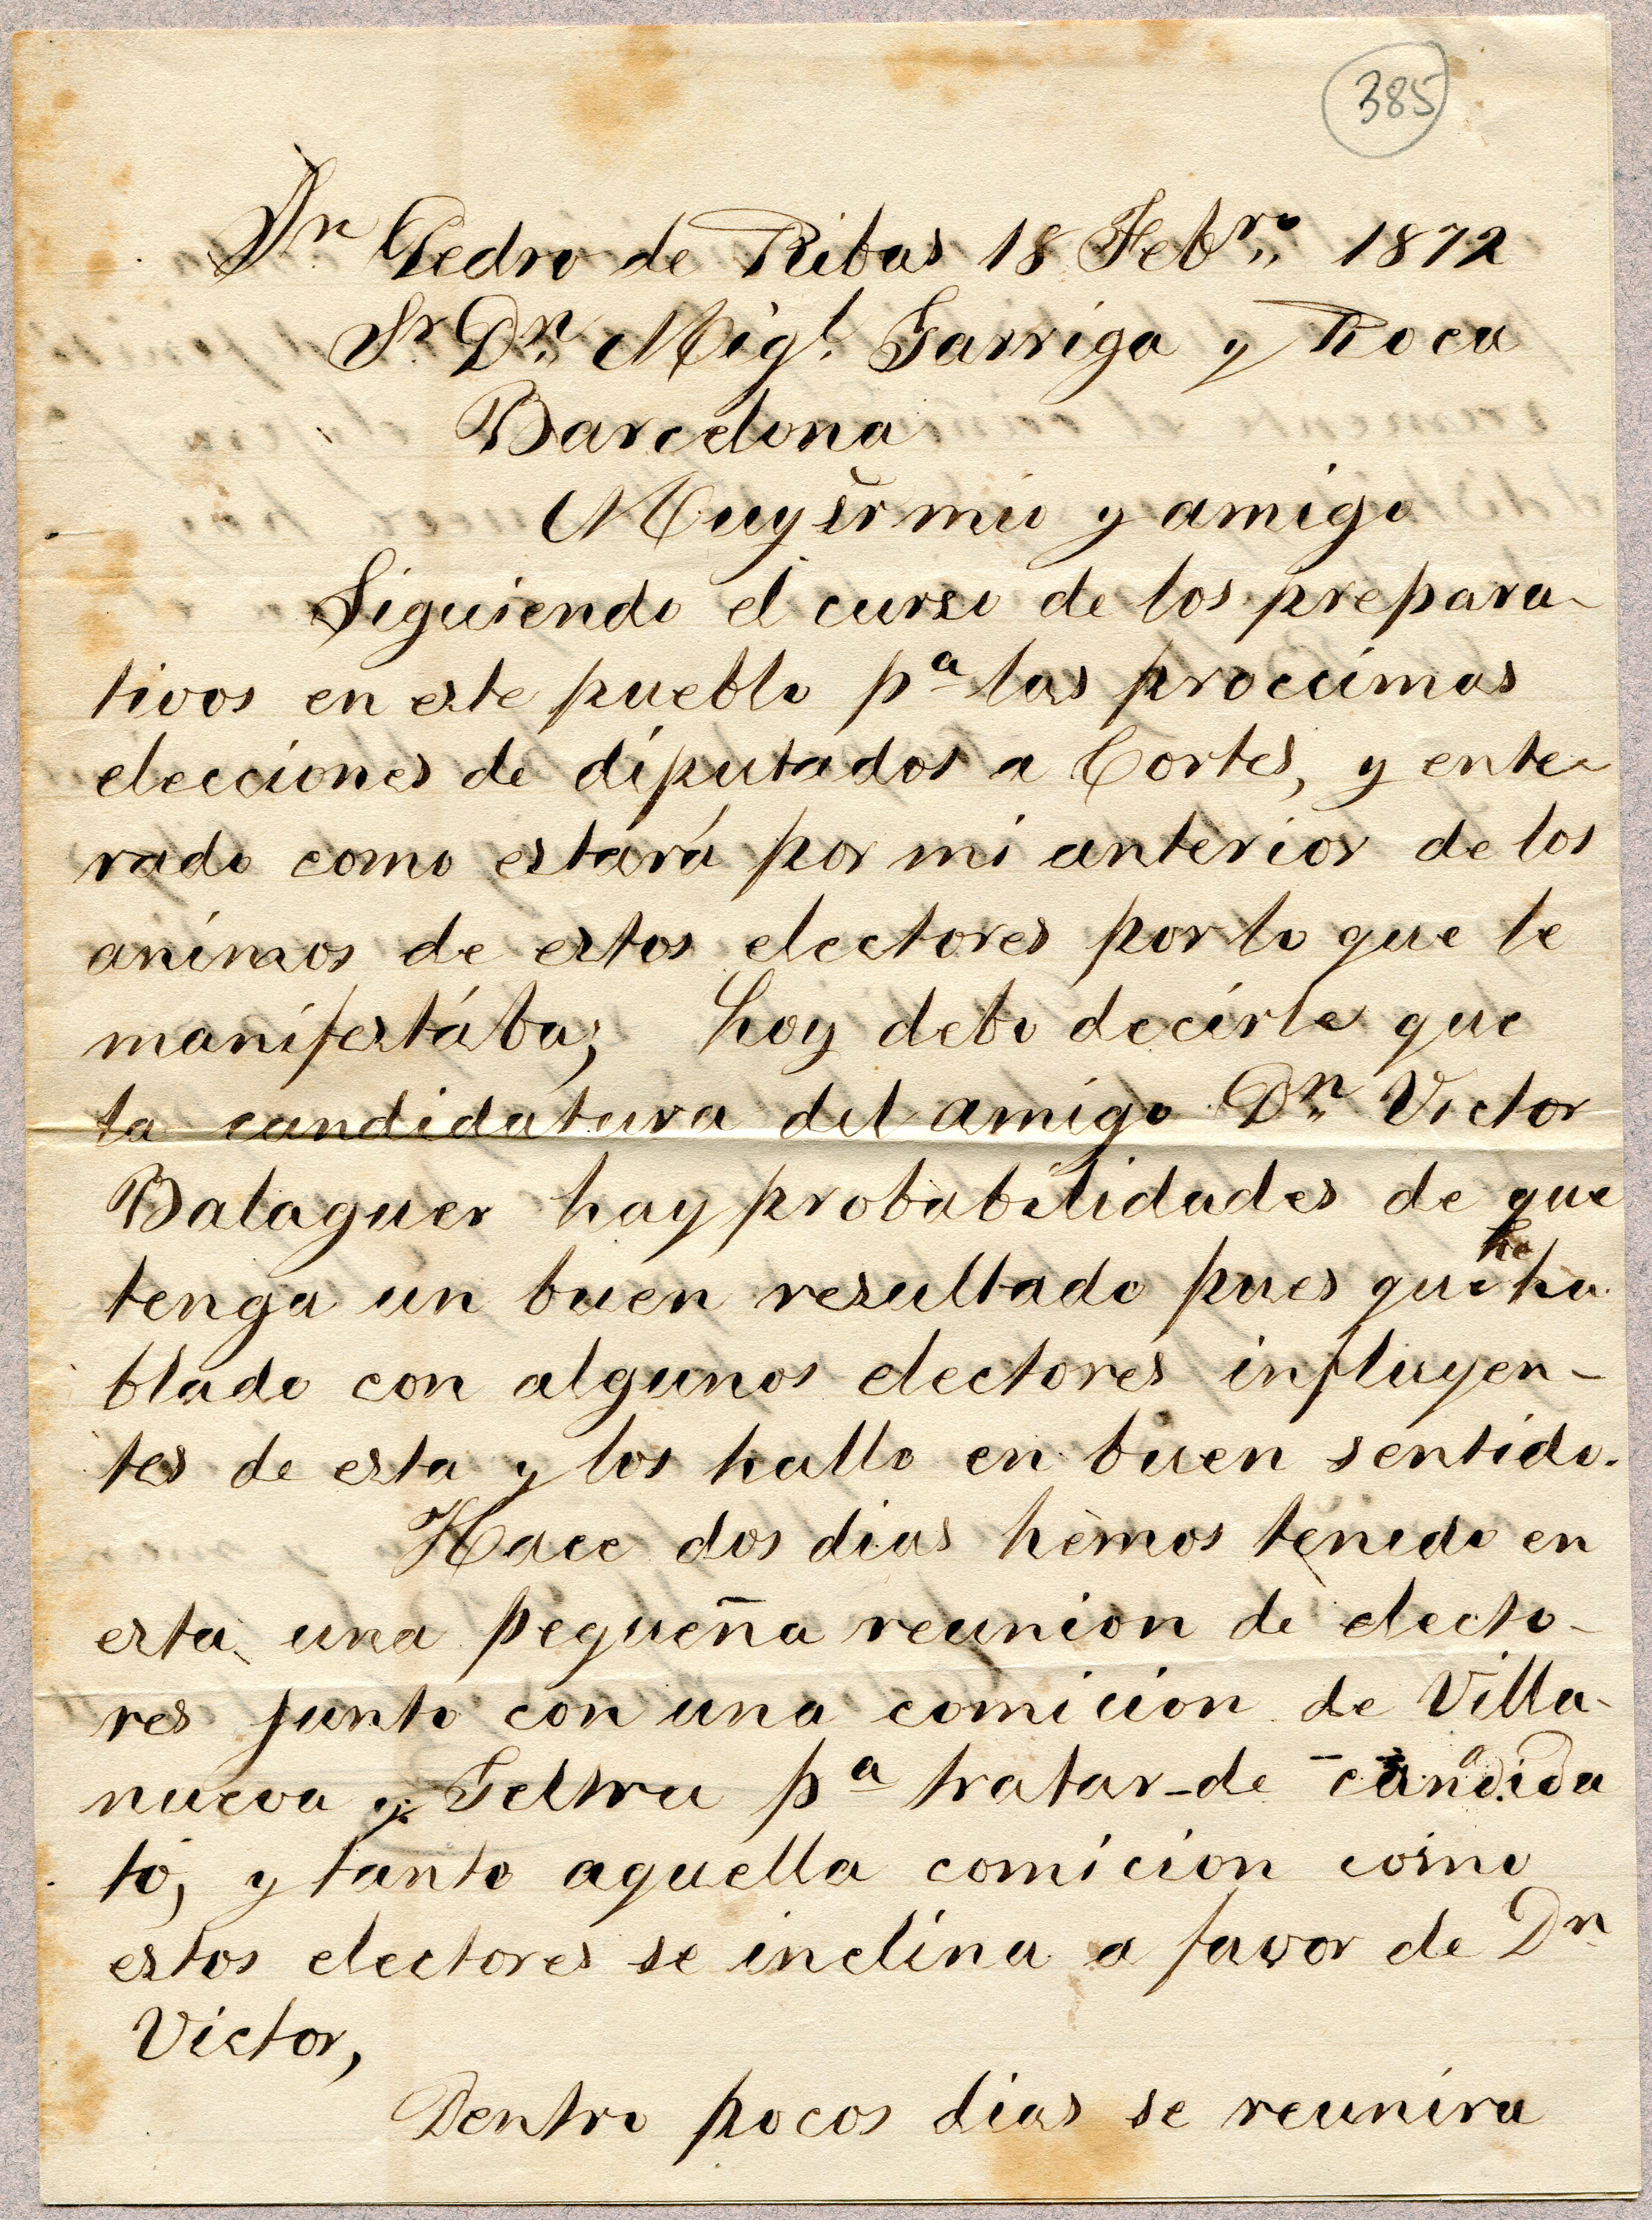 385
Sn Pedro de Ribas 18 Febro 1872
Sr Dn Migl. Garriga y Roca
Barcelona
Muy sr mio y amigo
Siguiendo el curso de los prepara-
tivos en este pueblo pa las procсimas
elecciones de diputados a Cortes, y ente-
rado como estará por mi anterior de los
animos de estos electores por lo que le
manifestába; hoy debo decirle que
la candidatura del amigo Dn Victor
Balaguer hay probabilidades de que
tenga un buen resultado pues que he ha
blado con algunos electores influyen-
tes de esta y los hallo en buen sentido.
Hace dos dias hemos tenido en
esta una pequeña reunion de electo-
res junto con una comicion de Villa-
nueva y Geltru pa tratar de candida
to, y tanto aquella comicion como
estos electores se inclina a favor de Dn
Victor,
Dentro pocos dias se reunira